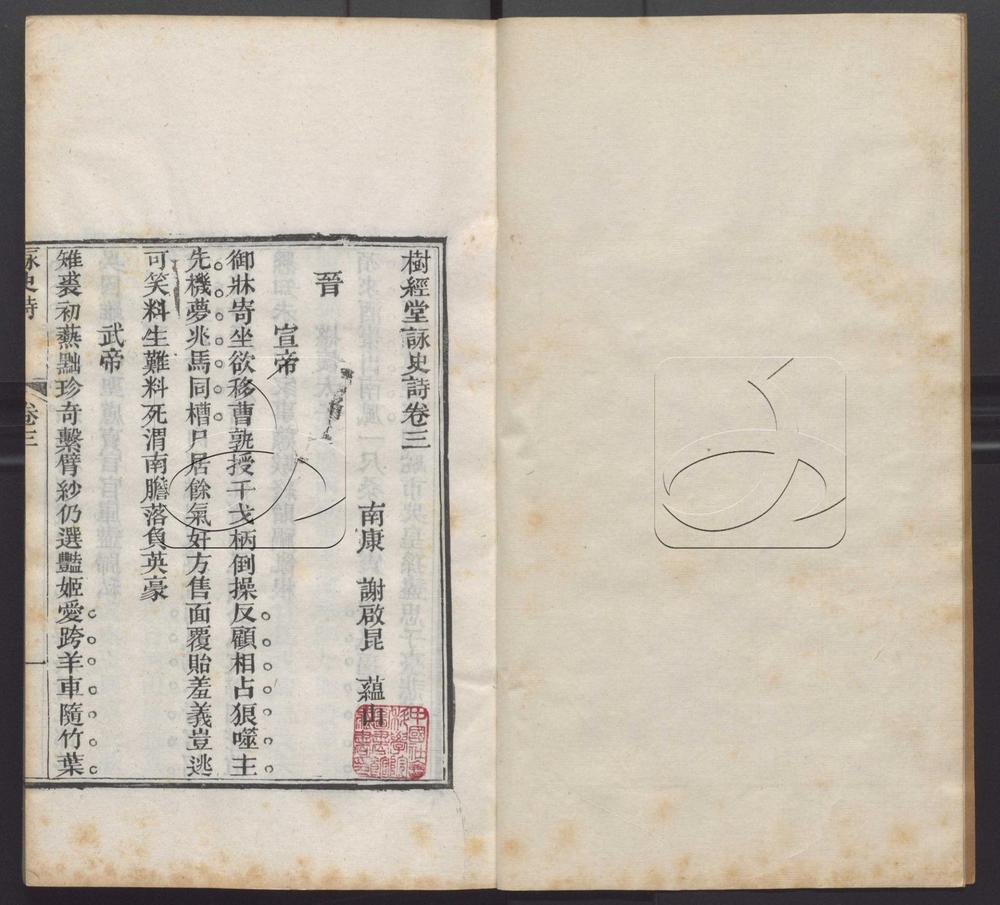 樹經堂詠史詩卷三
南康 謝啟昆 蘊山
晉
宣帝
御牀寄坐欲移曹孰授干戈柄倒操反顧相占狼噬主
先機夢兆馬同槽尸居餘氣奸方售面覆貽羞義豈逃
可笑料生難料死渭南膽落負英豪
武帝
雉裘初爇黜珍奇繫臂紗仍選豔姬愛跨羊車隨竹葉
詠史詩 卷三 一